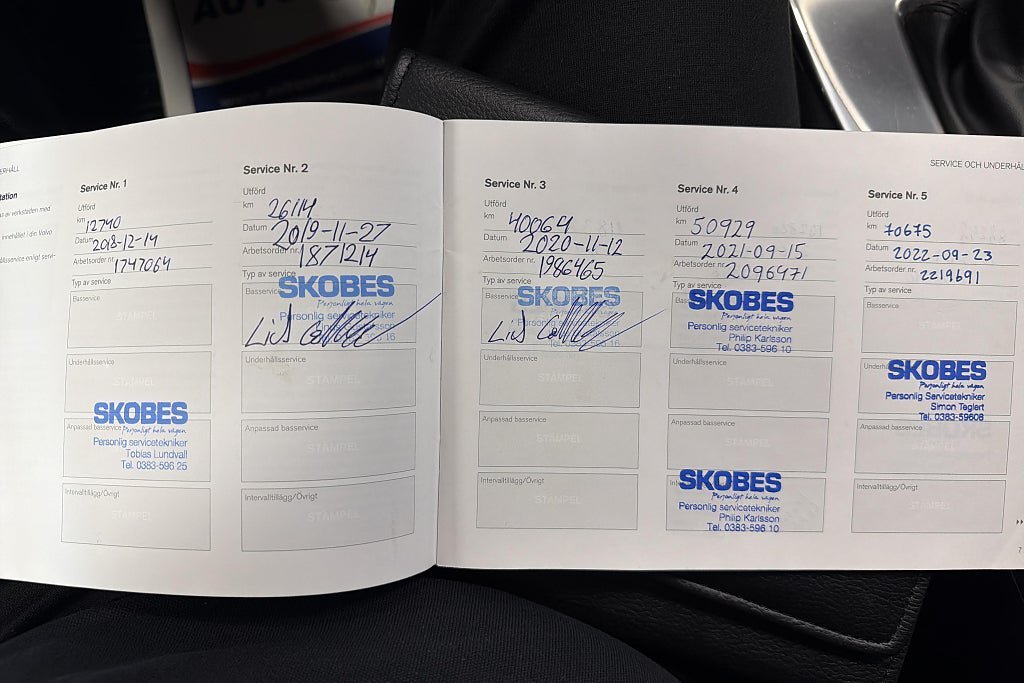 AUTO
SERVICE OCH UNDERHÅLL
Service Nr. 1
Utförd
km 12740
Datum 2018-12-14
Arbetsorder nr. 1747064
Typ av service
Basservice
STÄMPEL
Underhållsservice
STÄMPEL
Anpassad basservice
SKOBES
Personligt hela vägen
Personlig servicetekniker
Tobias Lundvall
Tel. 0383-596 25
Intervalltillägg/Övrigt
STÄMPEL
Service Nr. 2
Utförd
km 26114
Datum 2019-11-27
Arbetsorder nr. 1871214
Typ av service
Basservice
SKOBES
Personligt hela vägen
Personlig servicetekniker
Underhållsservice
STÄMPEL
Anpassad basservice
STÄMPEL
Intervalltillägg/Övrigt
STÄMPEL
Service Nr. 3
Utförd
km 40064
Datum 2020-11-12
Arbetsorder nr. 1986465
Typ av service
Basservice
SKOBES
Personligt hela vägen
Personlig servicetekniker
Underhållsservice
STÄMPEL
Anpassad basservice
STÄMPEL
Intervalltillägg/Övrigt
STÄMPEL
Service Nr. 4
Utförd
km 50929
Datum 2021-09-15
Arbetsorder nr. 2096471
Typ av service
SKOBES
Personligt hela vägen
Personlig servicetekniker
Philip Karlsson
Tel. 0383-596 10
Underhållsservice
STÄMPEL
Anpassad basservice
STÄMPEL
SKOBES
Personligt hela vägen
Personlig servicetekniker
Philip Karlsson
Tel. 0383-596 10
Service Nr. 5
Utförd
km 70675
Datum 2022-09-23
Arbetsorder nr. 2219691
Typ av service
Basservice
STÄMPEL
SKOBES
Personligt hela vägen
Personlig Servicetekniker
Simon Teglert
Tel. 0383-59608
Anpassad basservice
STÄMPEL
Intervalltillägg/Övrigt
STÄMPEL
7